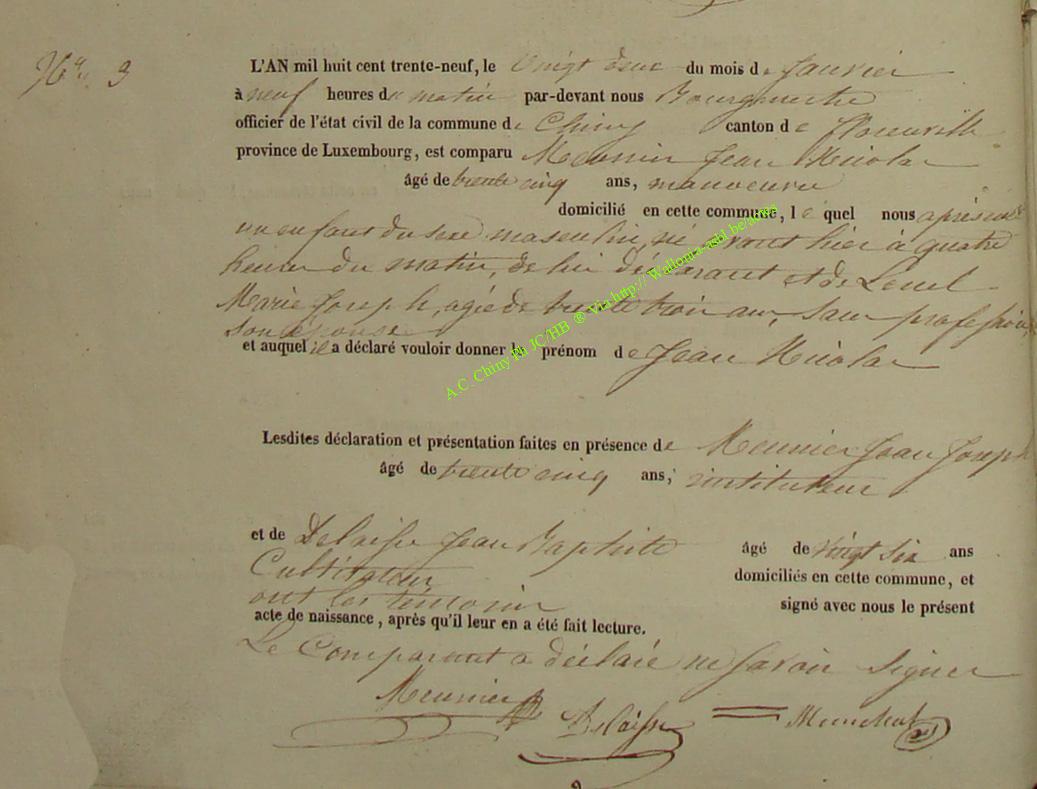 N° 3
L'AN mil huit cent trente-neuf, le vingt deux du mois de Janvier
à neuf heures du matin par-devant nous Bourgmestre
officier de l'état civil de la commune de Chiny canton de florenville
province de Luxembourg, est comparu Meunier Jean Nicolas
âgé de trente cinq ans, manoeuvre
domicilié en cette commune, le quel nous a présenté
un enfant du sexe masculin, né avant hier à quatre
heures du matin, de lui déclarant et de
Marie Joseph, agée de trente trois ans, sans profession,
son épouse
et auquel il a déclaré vouloir donner le prénom de Jean Nicolas
Lesdites déclaration et présentation faites en présence de Meunier Jean Joseph
âgé de trente cinq ans, instituteur
et de Delaisse Jean Baptiste âgé de vingt six ans
Cultivateur domiciliés en cette commune, et
ont les témoins signé avec nous le présent
acte de naissance, après qu'il leur en a été fait lecture.
Le Comparant a déclaré ne savoir signer
Meunier Delaisse
A.C. Chiny Ph JC/HB ® Via http://Wallonia-asbl.be/